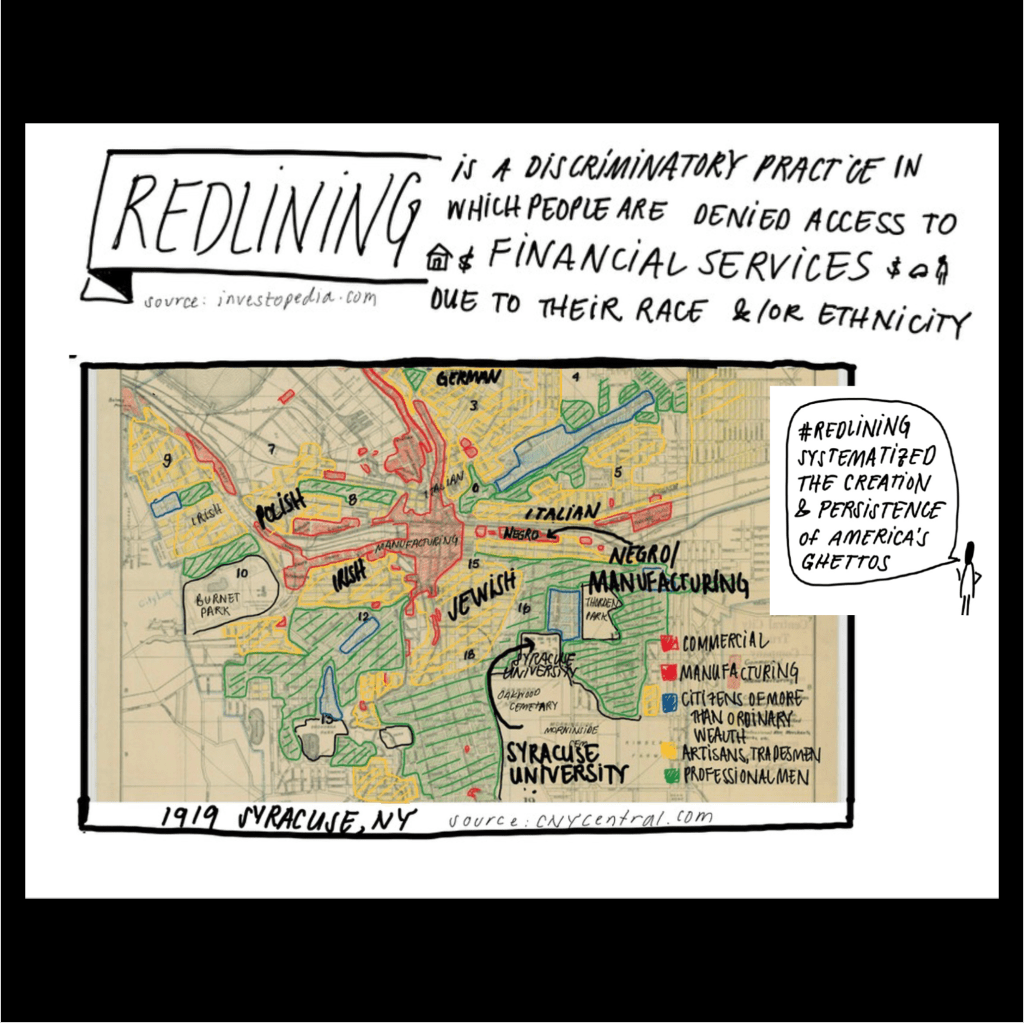 REDLINING
source: investopedia.com
IS A DISCRIMINATORY PRACTICE IN
WHICH PEOPLE ARE DENIED ACCESS TO
$ FINANCIAL SERVICES $
DUE TO THEIR RACE &/OR ETHNICITY
GERMAN
4
3
9
7
5
ITALIAN
6
8
POLISH
IRISH
ITALIAN
NEGRO
MANUFACTURING
NEGRO/
MANUFACTURING
10
BURNET
PARK
IRISH
15
JEWISH
16
THORDEN
PARK
12
18
SYRACUSE
UNIVERSITY
OAKWOOD
CEMETARY
MORNINGSIDE
CEM
13
SYRACUSE
UNIVERSITY
19
COMMERCIAL
MANUFACTURING
CITIZENS OF MORE
THAN ORDINARY
WEALTH
ARTISANS, TRADESMEN
PROFESSIONAL MEN
#REDLINING
SYSTEMATIZED
THE CREATION
& PERSISTENCE
OF AMERICA'S
GHETTOS
1919 SYRACUSE, NY
source: CNYCentral.com